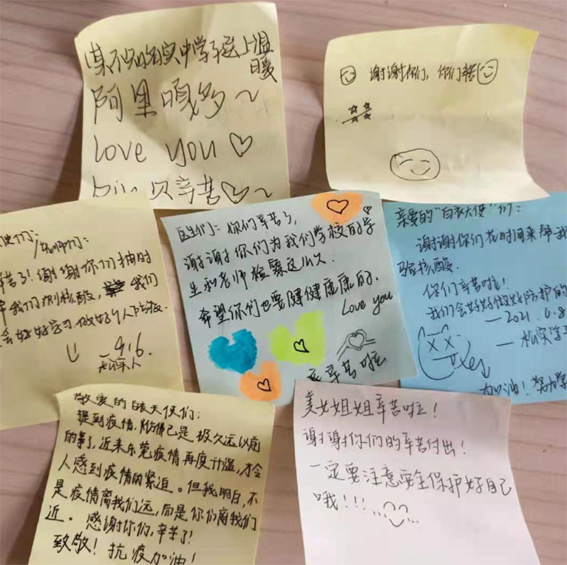 某不知名实中学子送上温暖
阿里嘎多～
Love you ♡
辛苦♡～
谢谢你们，你们辛苦
们：
谢谢你们抽时
我们测核酸，我们
会好好学习做好个人防疫
医生们：你们辛苦了，
谢谢你们为我们学校的学
生和老师检察这么久
希望你们也要健健康康的.
Love you
辛苦啦
亲爱的“白衣天使”们：
谢谢你们花时间来帮我
验核酸。
你们辛苦啦！
我们会好好做好防护的
—2021.6.8
加油！
敬爱的白衣天使们：
提到疫情，仿佛已是极久远以前
的事了，近来东莞疫情再度升温，才令
人感到疫情的紧迫。但我明白，不
是疫情离我们远，而是你们离我们
近。感谢你们，辛苦了！
致敬！抗疫加油！
美女姐姐辛苦啦！
谢谢你们的辛苦付出！
一定要注意安全保护好自己
哦！！！